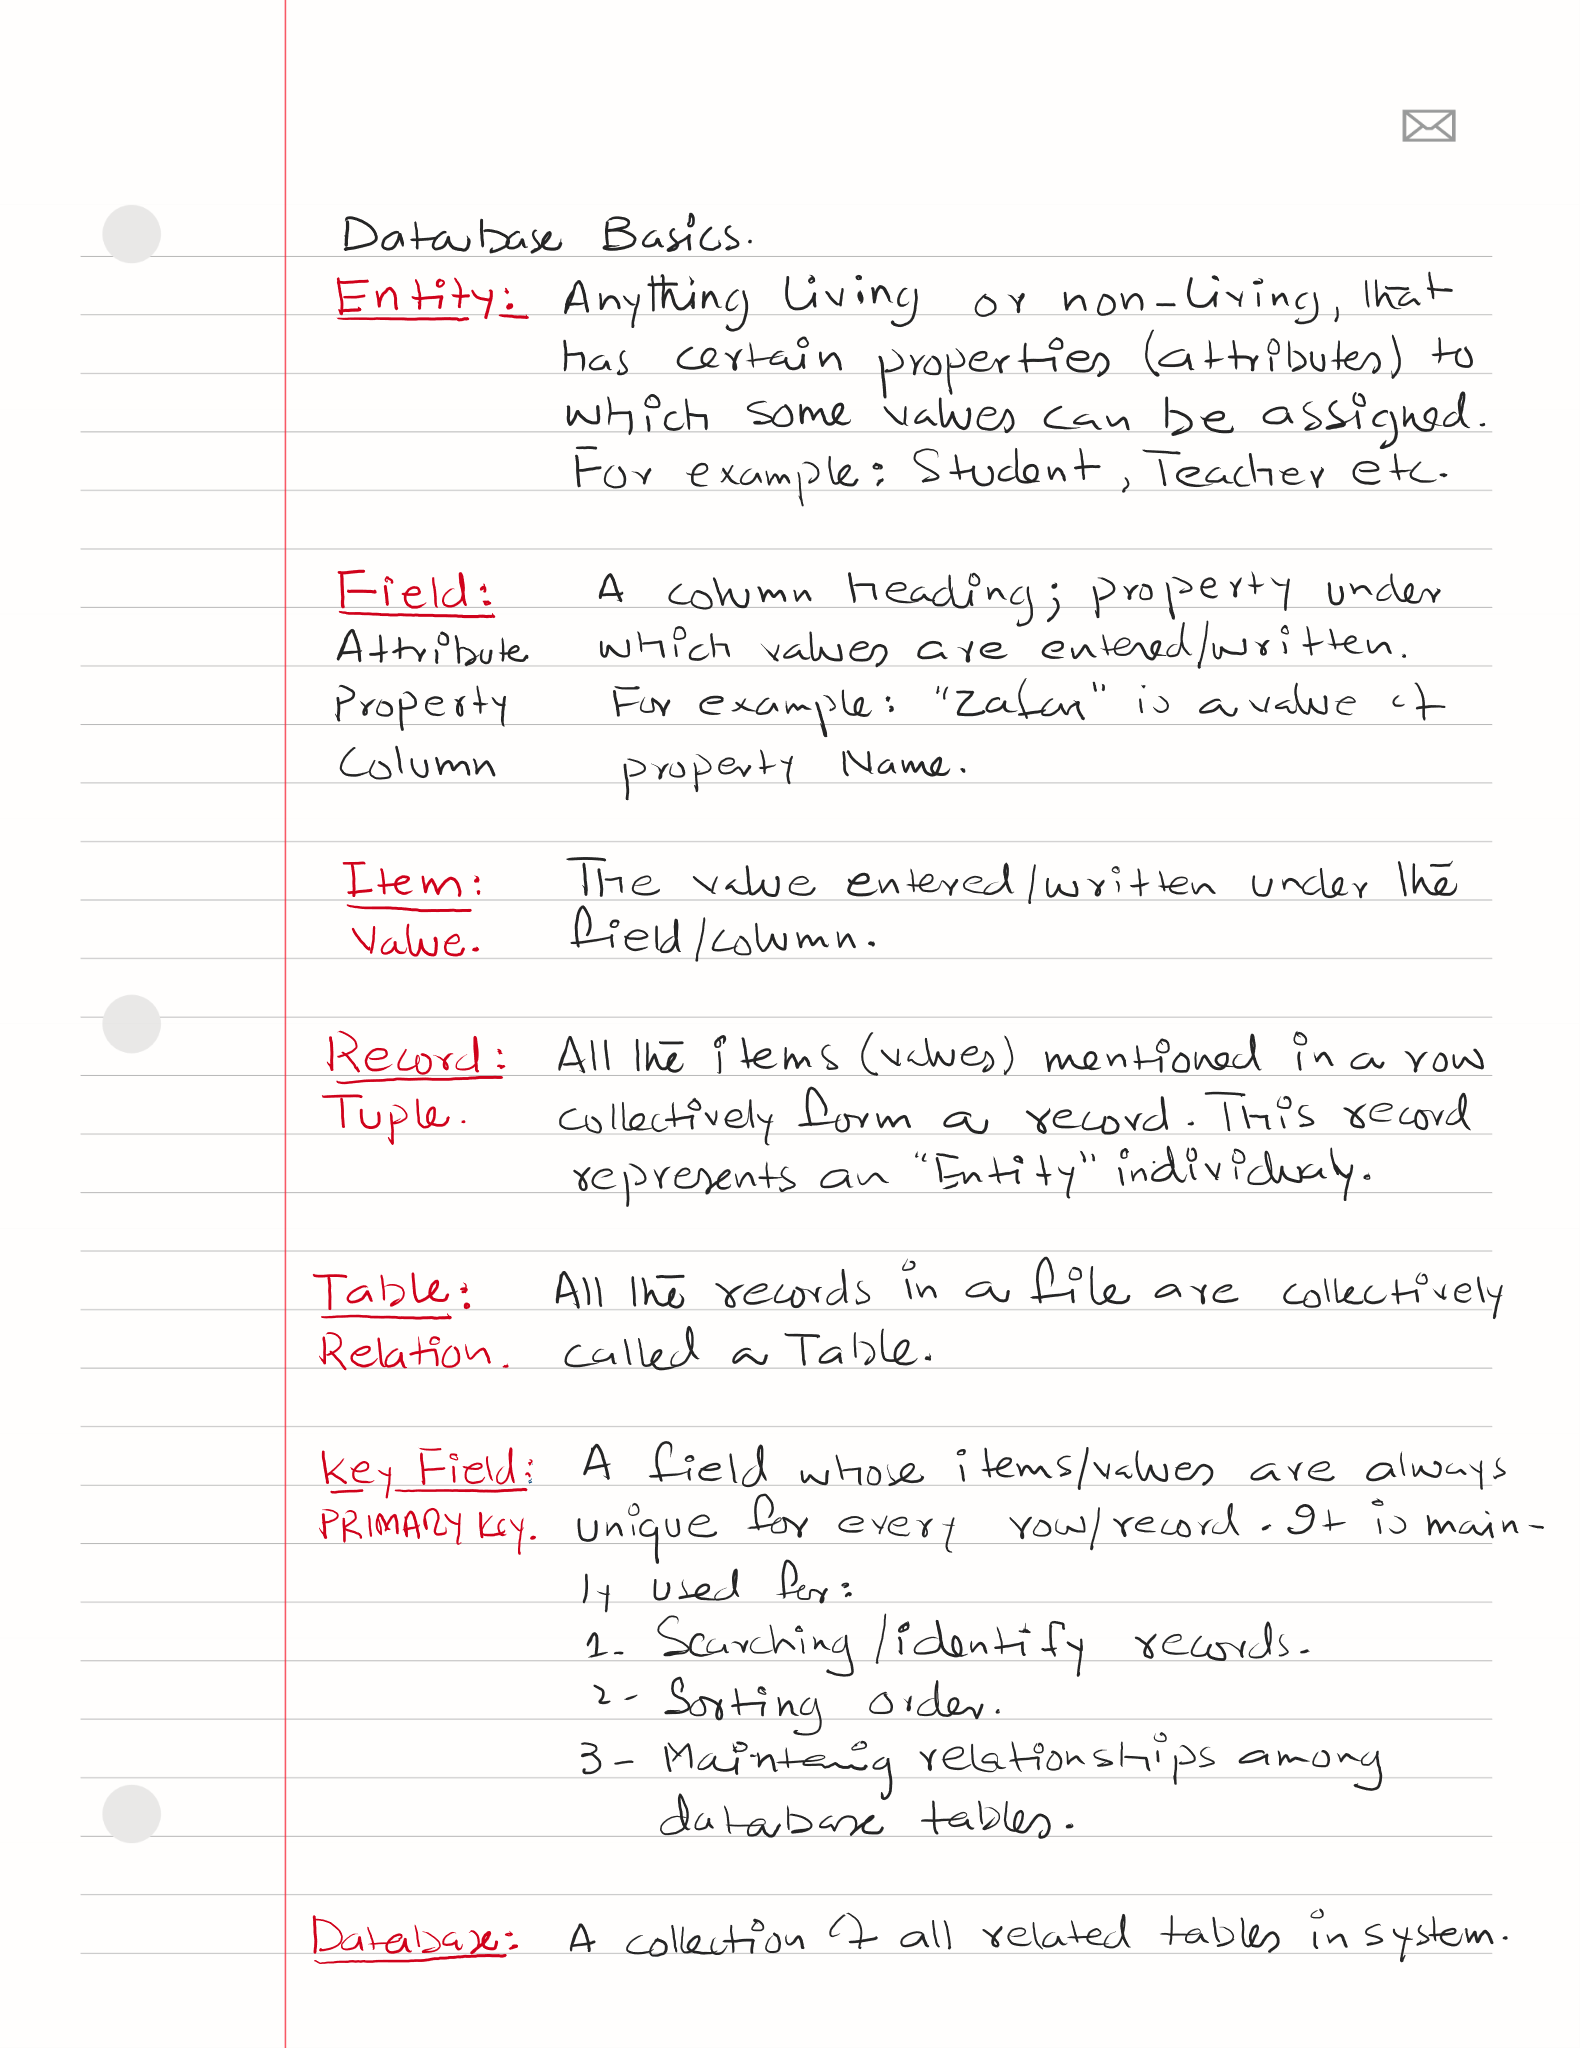 Database Basics.
Entity: Anything living or non-living, that
has certain properties (attributes) to
which some values can be assigned.
For example: Student, Teacher etc.
Field: A column heading; property under
Attribute which values are entered/written.
Property For example: "Zafar" is a value of
Column property Name.
Item: The value entered/written under the
Value. field/column.
Record: All the items (values) mentioned in a row
Tuple. collectively form a record. This record
represents an "Entity" individualy.
Table: All the records in a file are collectively
Relation. called a Table.
Key Field: A field whose items/values are always
PRIMARY Key. unique for every row/record. It is main-
ly used for:
1- Searching/identify records.
2- Sorting order.
3- Maintenig relationships among
database tables.
Database: A collection of all related tables in system.